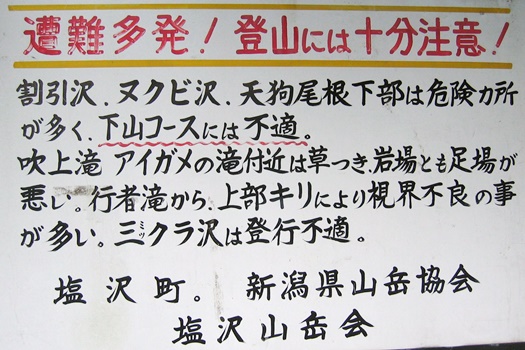 遭難多発！登山には十分注意！
割引沢．ヌクビ沢．天狗尾根下部は危険カ所
が多く、下山コースには不適。
吹上滝 アイガメの滝付近は草つき、岩場とも足場が
悪い。行者滝から、上部キリにより視界不良の事
が多い。三ツクラ沢は登行不適。
塩沢町。 新潟県山岳協会
塩沢山岳会